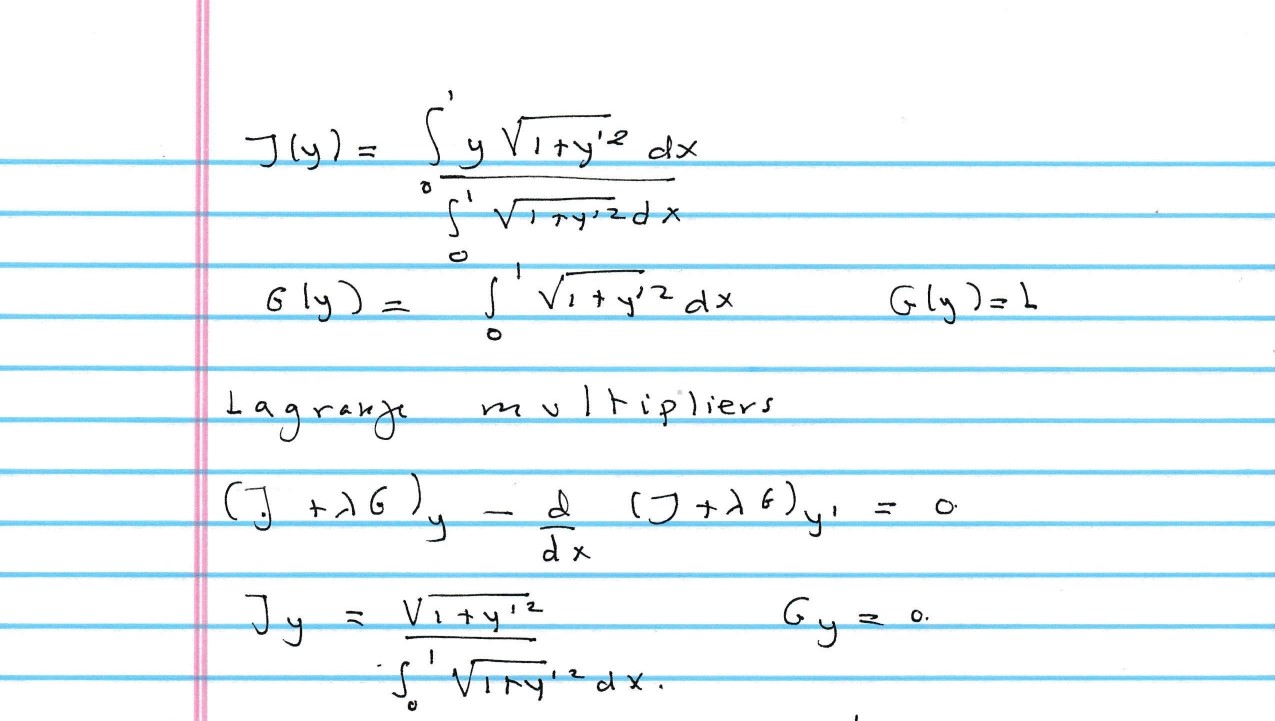 J(y) = ∫₀¹ y √(1+y'²) dx
∫₀¹ √(1+y'²) dx
G(y) = ∫₀¹ √(1+y'²) dx G(y) = L
Lagrange multipliers
(J + λG)y − d/dx (J + λG)y' = 0.
Jy = √(1+y'²) Gy = 0.
∫₀¹ √(1+y'²) dx.